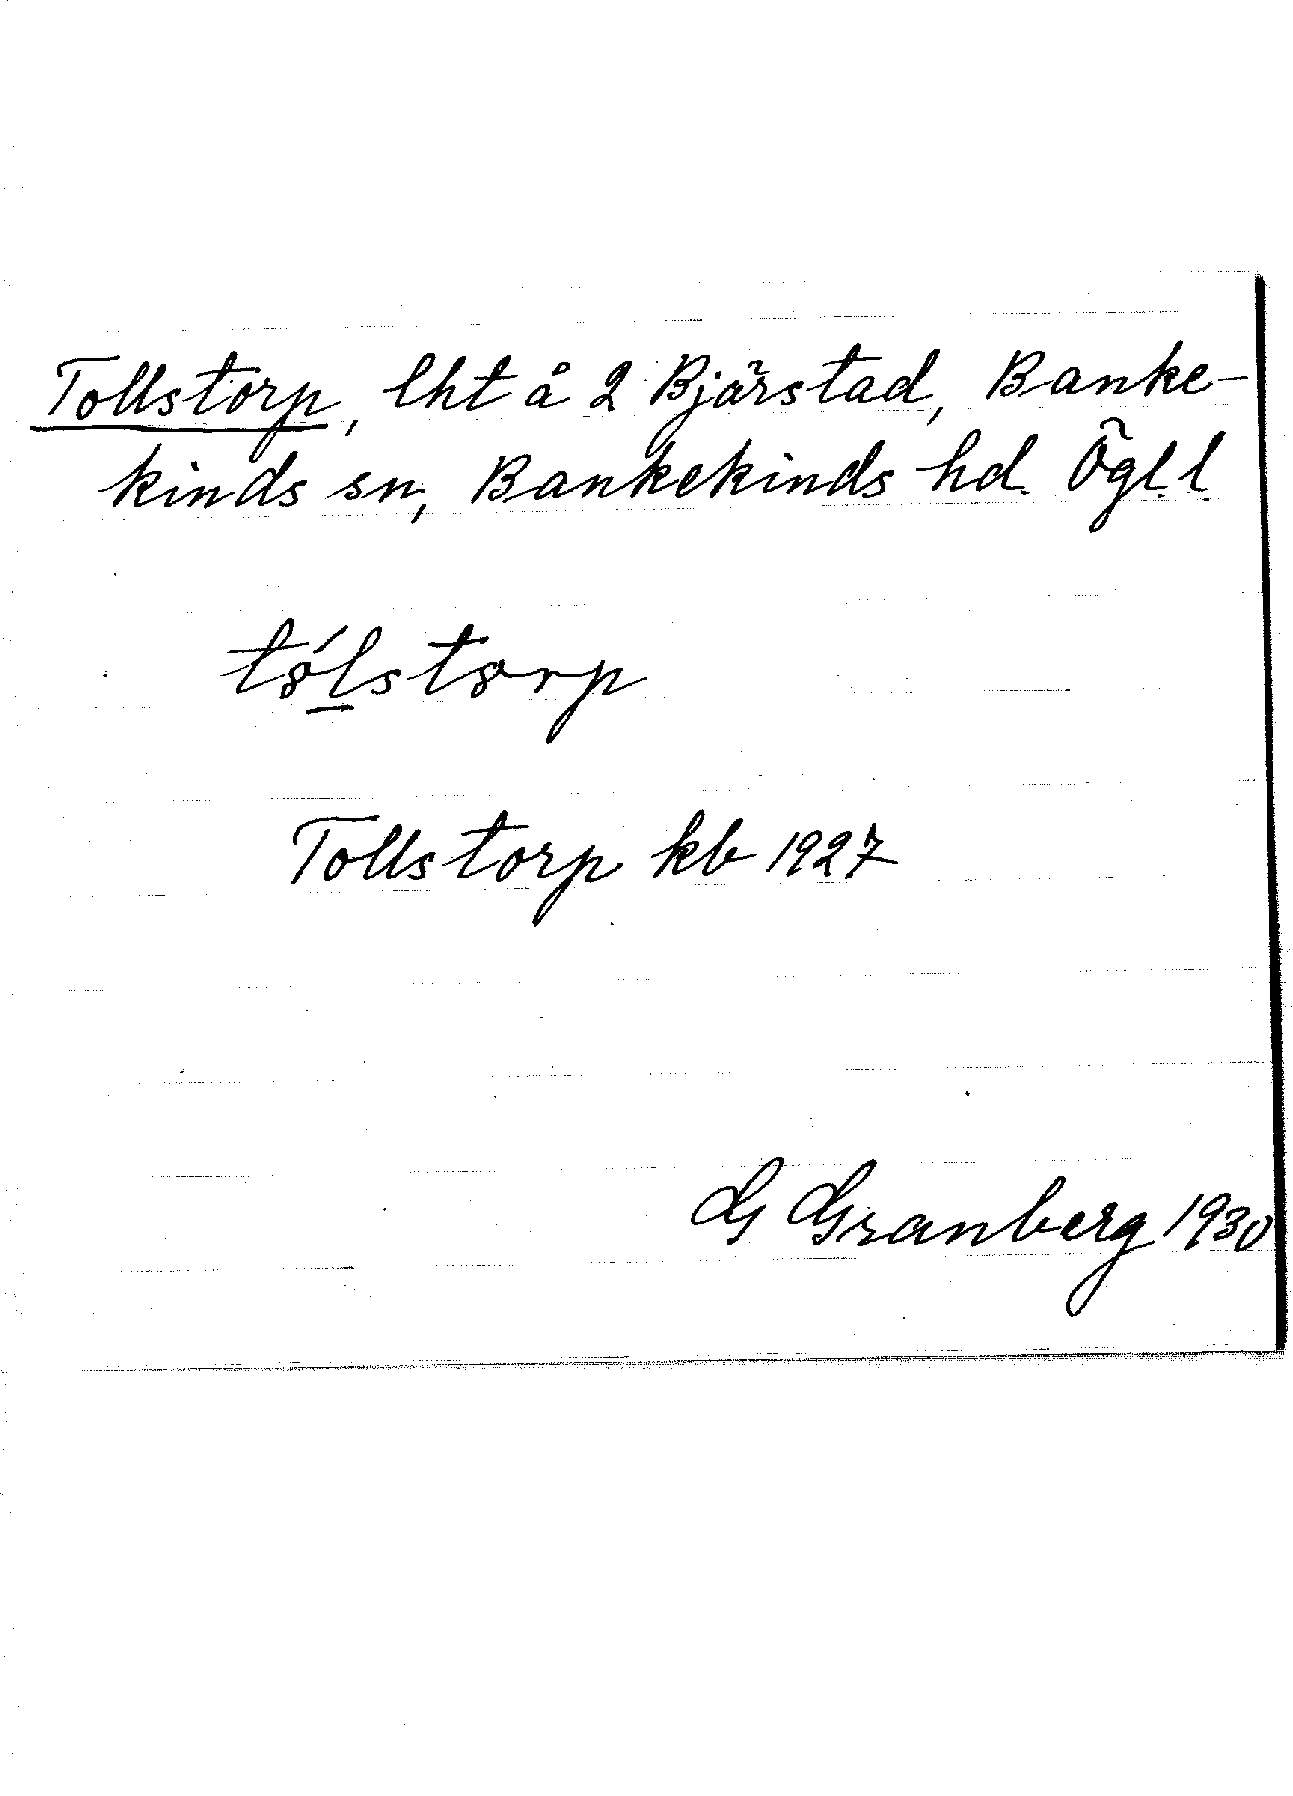 Tollstorp, lht å 2 Bjärstad, Banke-
kinds sn, Bankekinds hd. Ögl. l
tólstorp
Tollstorp kb 1927
G Granberg 1930